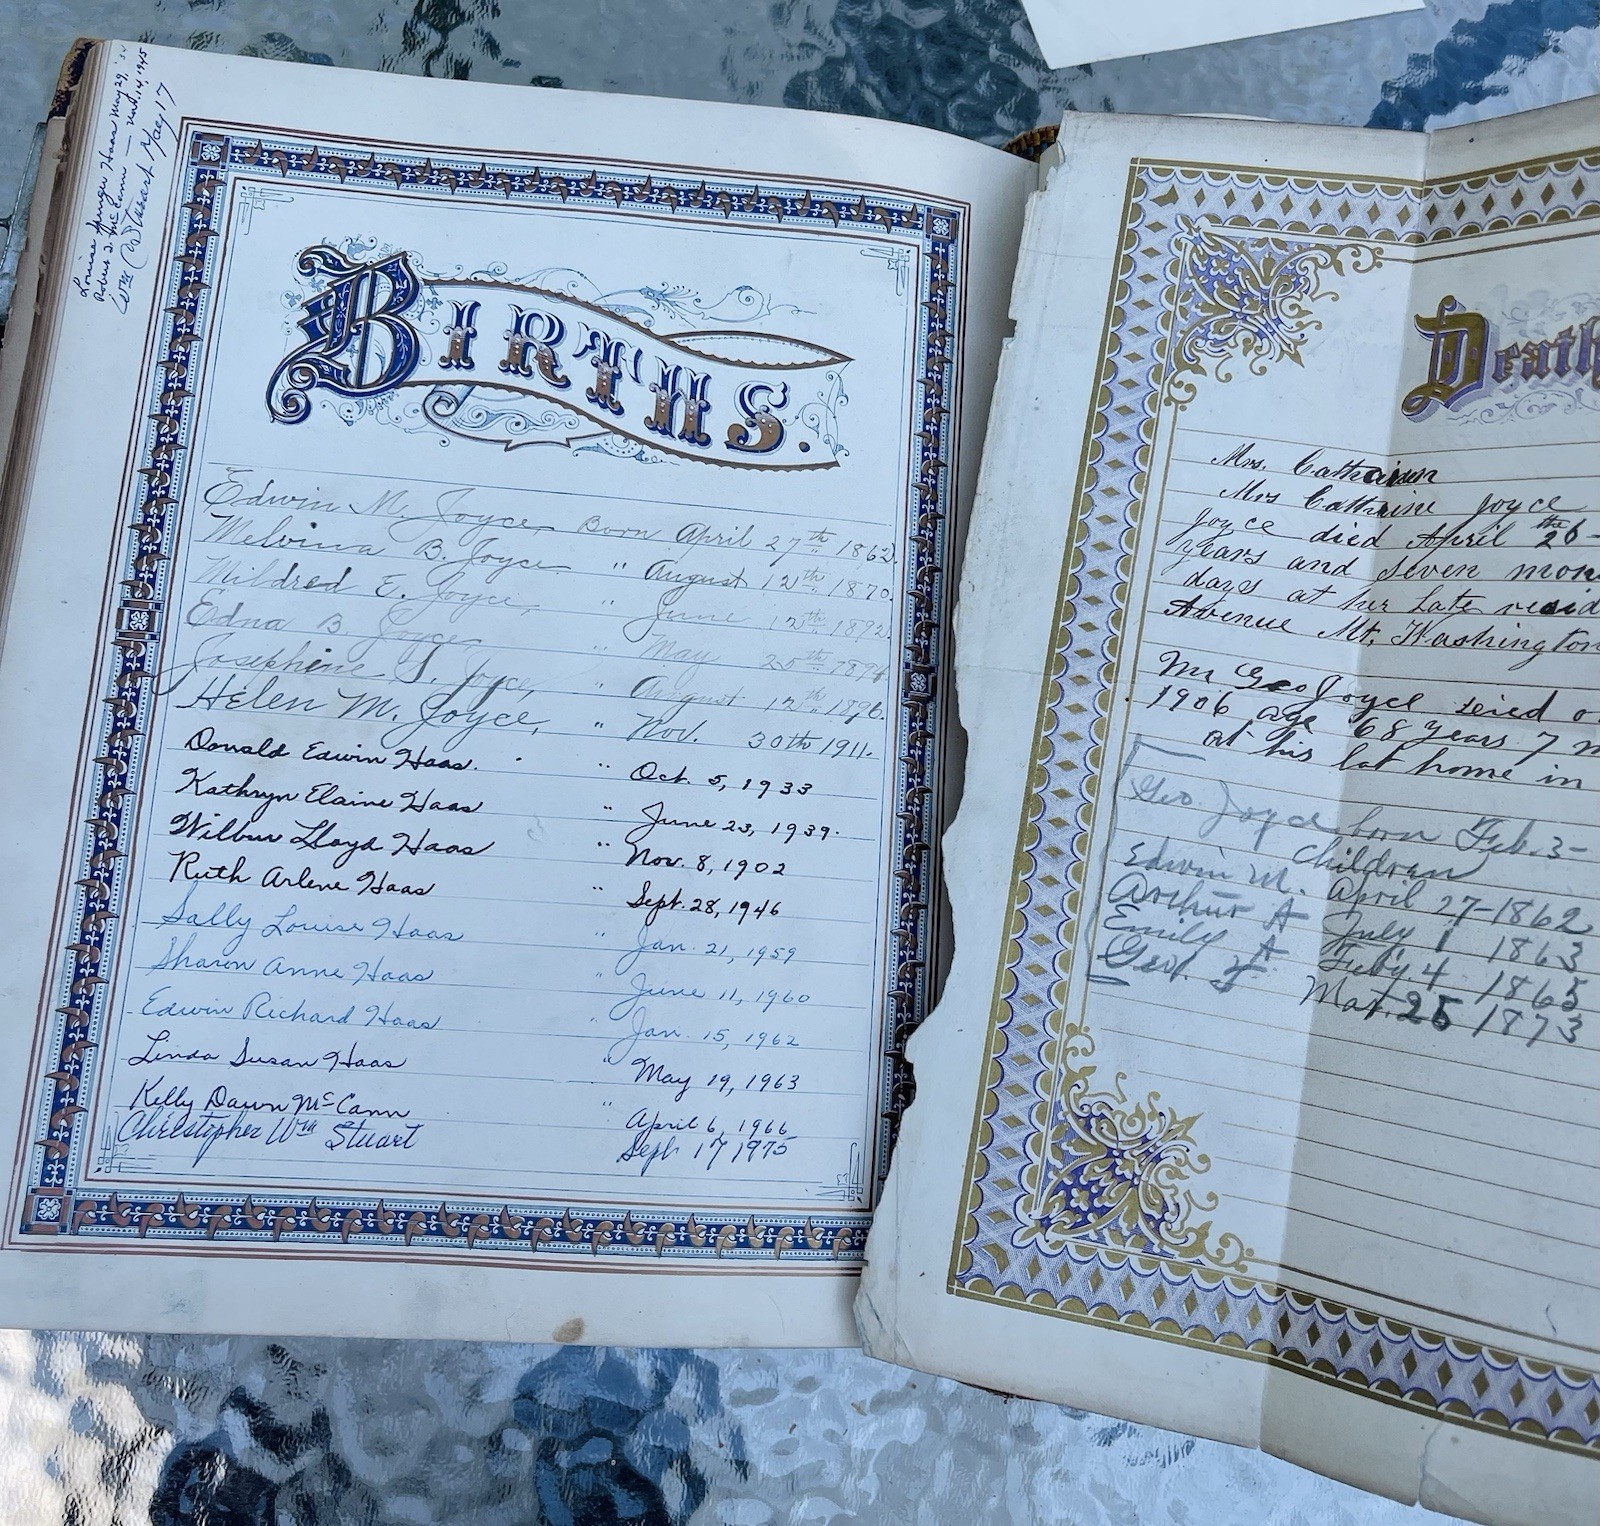 Louise Unger Haas May 29, '34
Robert J. McCann — 14, 1945
Wm Stuart May 17
BIRTHS.
Edwin M. Joyce, Born April 27th 1862.
Melvina B. Joyce " August 12th 1870.
Mildred E. Joyce, " June 12th 1892.
Edna B. Joyce, " May 25th 1894
Josephine S. Joyce, " August 12th 1896.
Helen M. Joyce, " Nov. 30th 1911.
Donald Edwin Haas. " Oct. 5, 1933
Kathryn Elaine Haas " June 23, 1939.
Wilbur Lloyd Haas " Nov. 8, 1902
Ruth Arlene Haas " Sept. 28, 1946
Sally Louise Haas " Jan. 21, 1959
Sharon Anne Haas " June 11, 1960
Edwin Richard Haas " Jan. 15, 1962
Linda Susan Haas " May 19, 1963
Kelly Dawn McCann " April 6, 1966
Christopher Wm Stuart Sept 17 1975
Death
Mrs. Catharine
Mrs Cathrine Joyce
Joyce died April the 26
years and seven mon
days at her late resid
Avenue Mt. Washington
Mr Geo Joyce died o
1906 age 68 years 7 m
at his lat home in
Geo. Joyce born Feb. 3-
Children
Edwin M. April 27-1862
Arthur A July 1 1863
Emily A Feby 4 1865
Geo. Mar. 25 1873